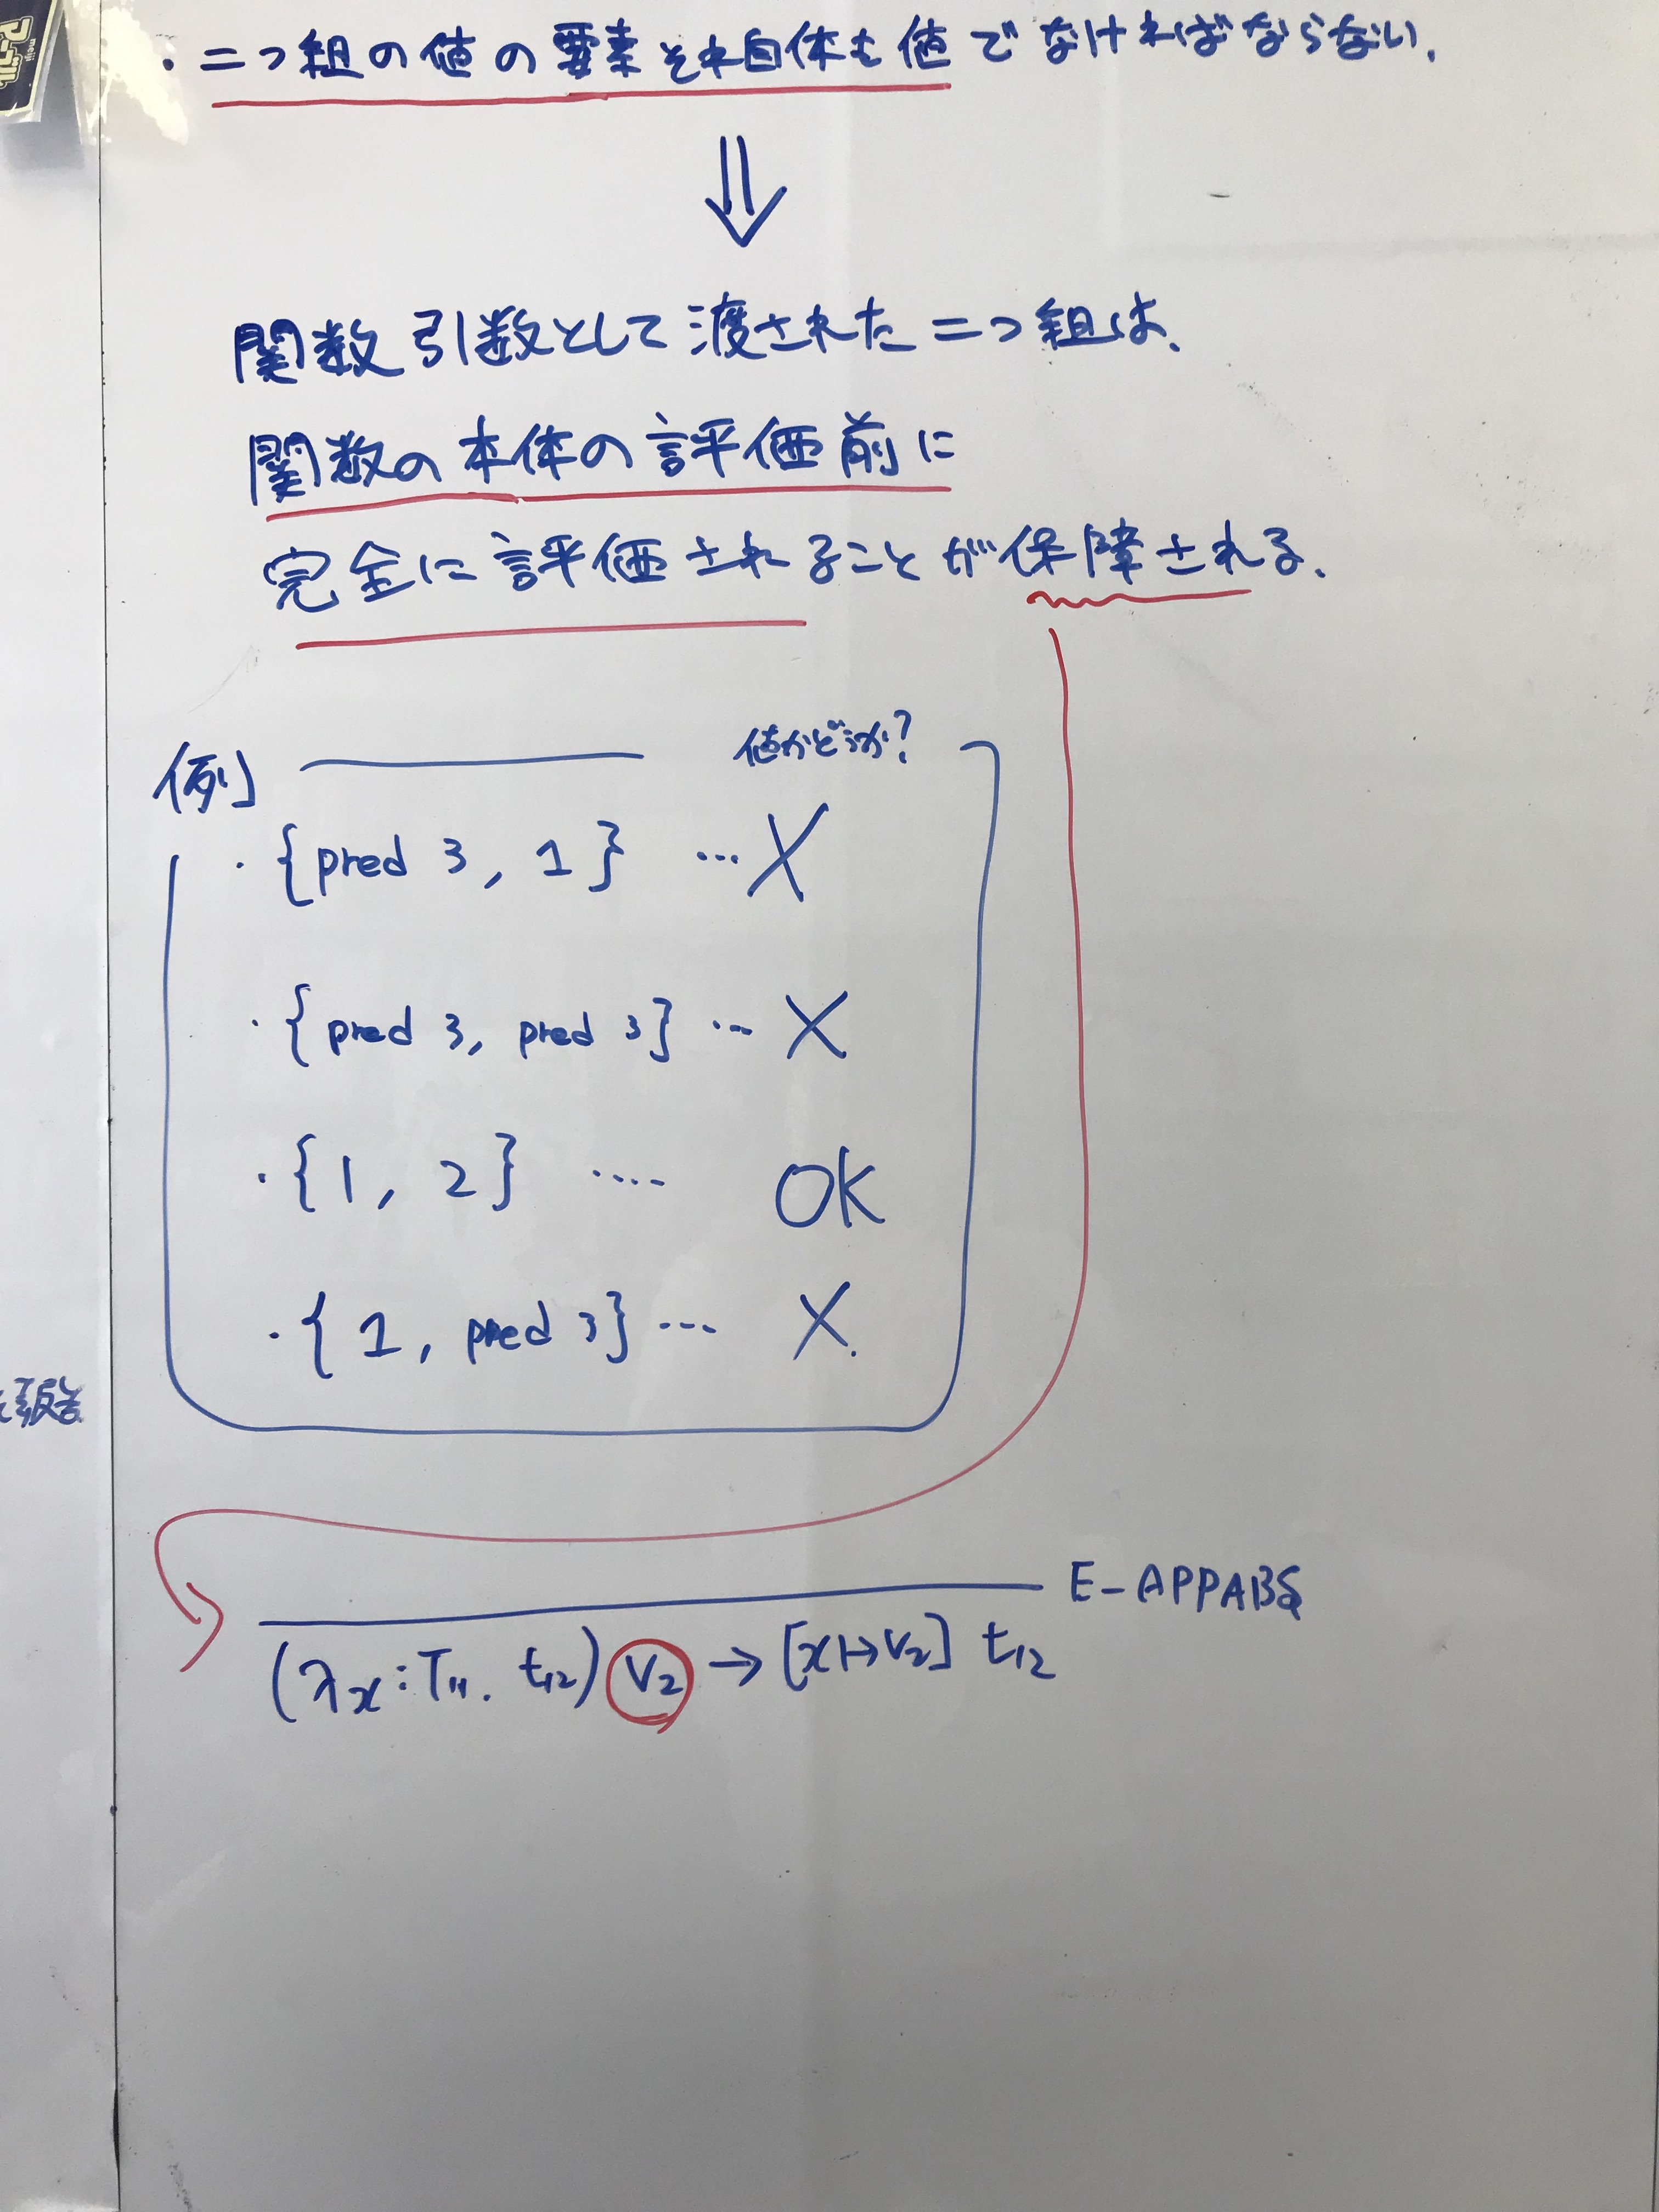 ・二つ組の値の要素それ自体も値でなければならない.
⇓
関数引数として渡された二つ組は、
関数の本体の評価前に
完全に評価されることが保障される.
例 値かどうか?
・{pred 3, 1} … X
・{pred 3, pred 3} … X
・{1, 2} …. OK
・{1, pred 3} … X.
E-APPABS
(λx:T₁₁. t₁₂) V₂ → [x↦V₂] t₁₂
meiji